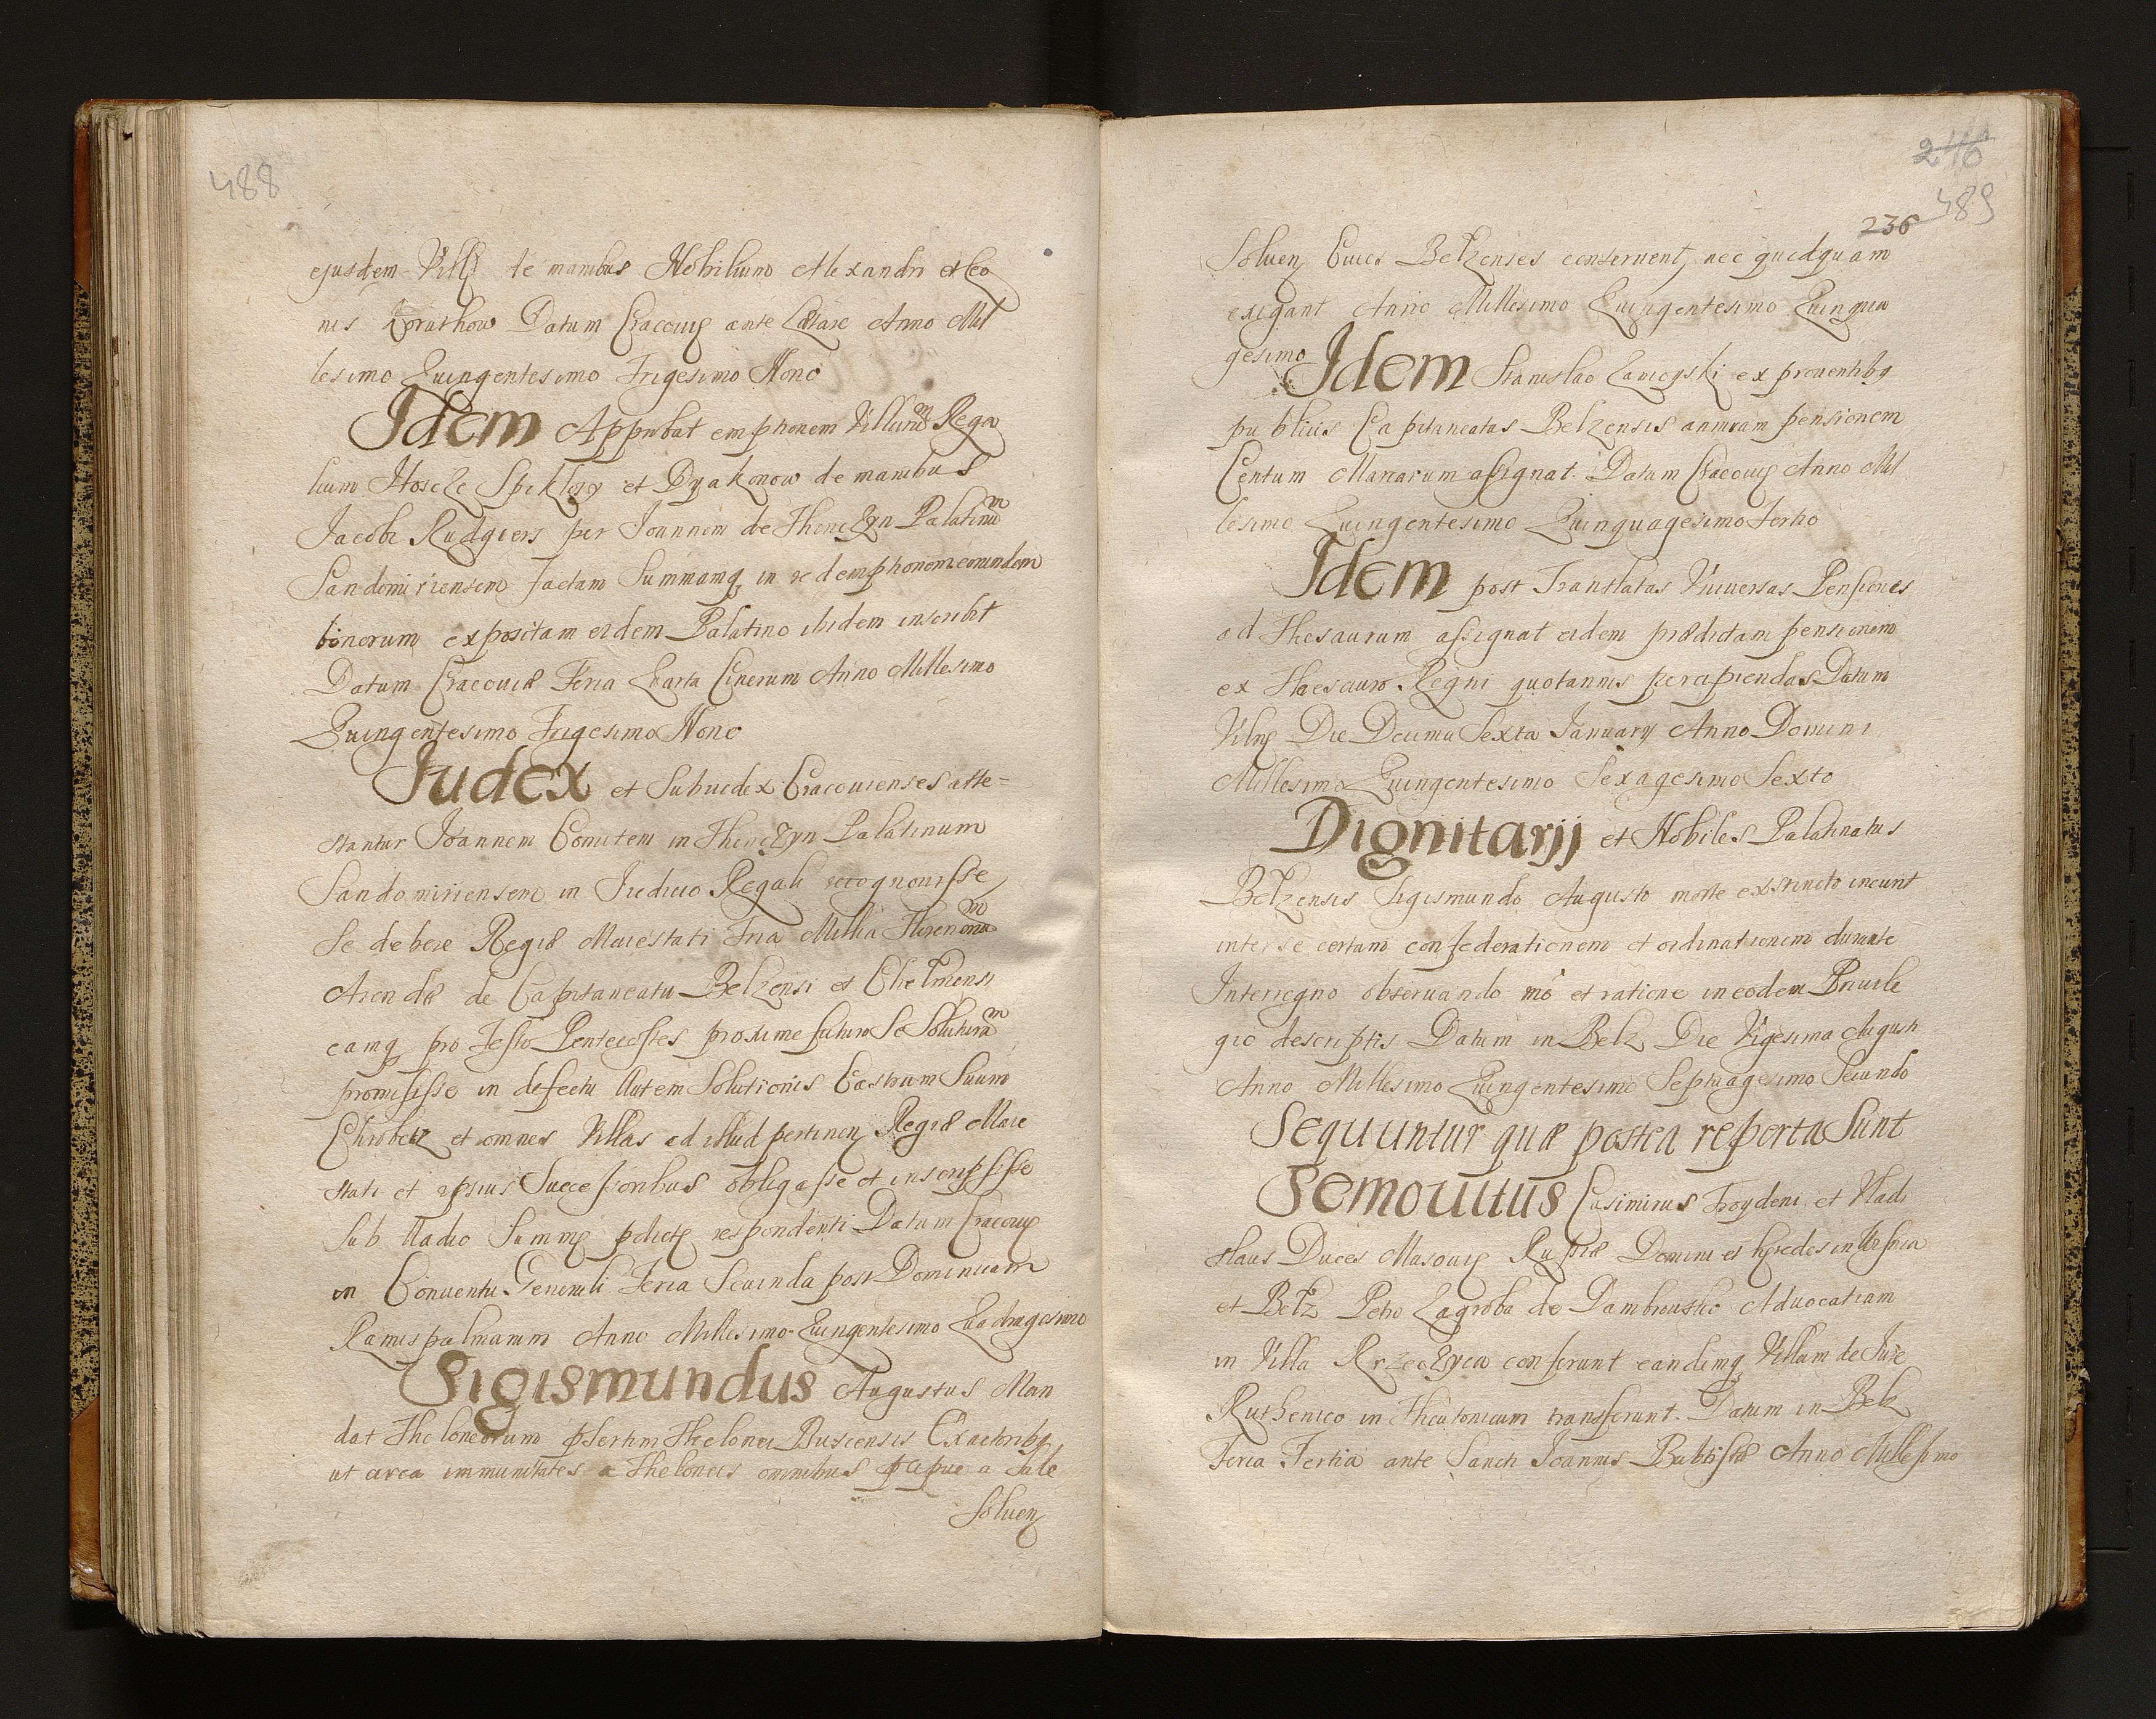 488
ejusdem Villę de manibus Nobilium Alexandri et Leo
nis Datum Cracouię ante Lætare Anno Mil
lesimo Quingentesimo Trigesimo Nono
Idem Approbat emptionem Villarum Rega
lium et Dyakonow de manibus
Jacobi Rudgiers per Joannem de Thenczyn Palatinum
Sandomiriensem factam Summamq in redemptionem eorundem
bonorum expositam eidem Palatino ibidem inscribit
Datum Cracouiæ Feria Quarta Cinerum Anno Millesimo
Quingentesimo Trigesimo Nono
Judex et Subiudex Cracouienses atte-
stantur Joannem Comitem in Thenczyn Palatinum
Sandomiriensem in Iudicio Regali recognouisse
Se debere Regiæ Maiestati Tria Millia Florenorum
Arendæ de Capitaneatu Belzensi et Chelmensi
eamq pro Festo Pentecostes proxime futuro Se Soluturam
promisisse in defectu Autem Solutionis Castrum Suum
Chroberz et omnes Villas ad illud pertinen Regiæ Maie
stati et ipsius Successoribus obligasse et inscripsisse
Sub Vadio Summę pdictę respondenti Datum Cracouię
in Conuentu Generali Feria Secunda post Dominicam
Ramis palmarum Anno Millesimo Quingentesimo Quadragesimo
Sigismundus Augustus Man
dat Theloneorum psertim Thelonei Buscensis Exactoribq
ut circa immunitates a Theloneis omnibus a Sale
Soluen
246
489
236
Soluen Ciues Belzenses conseruent, nec quidquam
exigant Anno Millesimo Quingentesimo Quinqua
gesimo
Idem Stanislao ex prouentibq
publicis Capitaneatus Belzensis annuam pensionem
Centum Marcarum assignat. Datum Cracouię Anno Mil
lesimo Quingentesimo Quinquagesimo Tertio
Idem post Translatas Vniuersas Pensiones
ad Thesaurum assignat eidem prædictam pensionem
ex Thesauro Regni quotannis percipiendas Datum
Vilnę Die Decima Sexta Ianuarij Anno Domini
Millesimo Quingentesimo Sexagesimo Sexto
Dignitarij et Nobiles Palatinatus
Belzensis Sigismundo Augusto morte extincto ineunt
inter se certam confederationem et ordinationem durante
Interregno obseruando mo et ratione in eodem Priuile
gio descriptis Datum in Belz Die Vigesima Augusti
Anno Millesimo Quingentesimo Septuagesimo Secundo
Sequuntur quæ postea reperta Sunt
Semouitus Casimirus Troydeni et Vladi
slaus Duces Masouię Russiæ Domini et hęredes in
et Belz Petro Zagroba de Advocatiam
in Villa Rzeczyca conferunt eandemq Villam de Jure
Ruthenico in Theutonicum transferunt. Datum in Belz
Feria Tertia ante Sancti Joannis Babtistæ Anno Millesimo